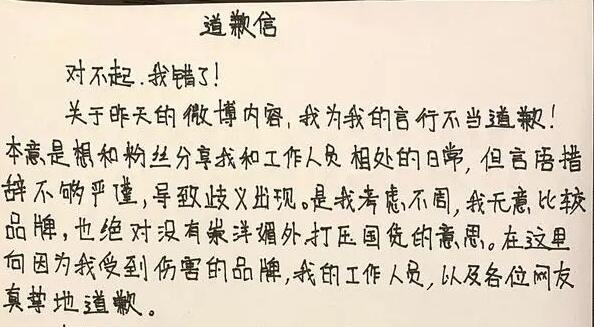 道歉信
对不起.我错了!
关于昨天的微博内容,我为我的言行不当道歉!
本意是想和粉丝分享我和工作人员相处的日常,但言语措
辞不够严谨,导致歧义出现。是我考虑不周,我无意比较
品牌,也绝对没有崇洋媚外,打压国货的意思。在这里
向因为我受到伤害的品牌,我的工作人员,以及各位网友
真挚地道歉。